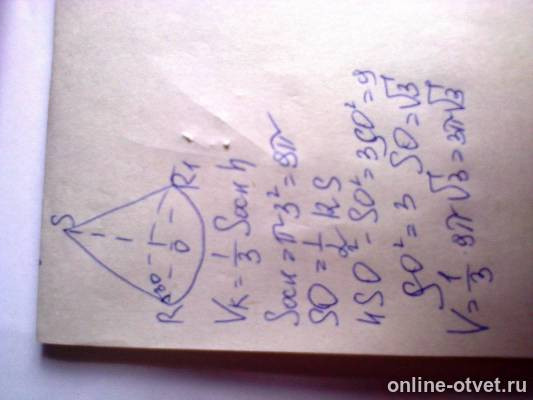 S
R 30 O R1
Vк = 1/3 Sосн h
Sосн = π·3² = 9π
SO = 1/2 RS
4SO - SO² = 3SO² = 9
SO² = 3 SO = √3
V = 1/3 · 9π √3 = 3π√3
online-otvet.ru